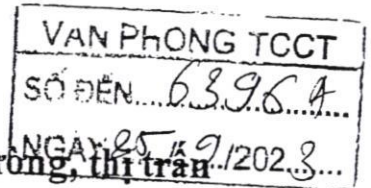 VAN PHONG TCCT
SỐ ĐẾN....6396A....
NGÀY 25/9/2023...
thị trấn